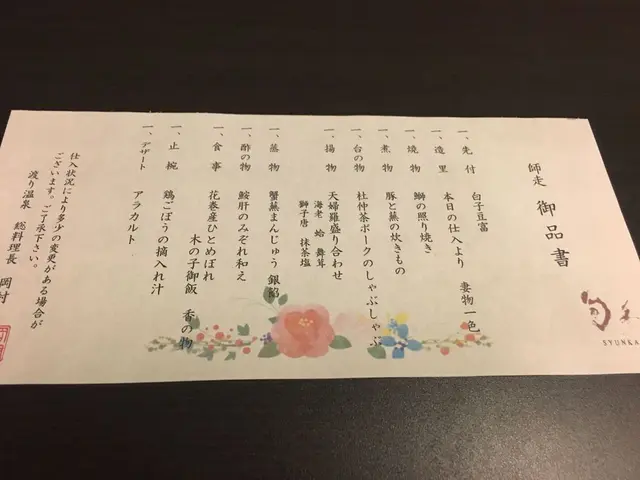 師走 御品書
一、先付 白子豆富
一、造里 本日の仕入より 妻物一色
一、焼物 鰤の照り焼き
一、煮物 豚と蕪の炊きもの
一、台の物 杜仲茶ポークのしゃぶしゃぶ
一、揚物 天婦羅盛り合わせ
海老 蛤 舞茸
獅子唐 抹茶塩
一、蒸物 蟹蕪まんじゅう 銀餡
一、酢の物 鮟肝のみぞれ和え
一、食事 花巻産ひとめぼれ
木の子御飯 香の物
一、止椀 鶏ごぼうの摘入れ汁
一、デザート アラカルト
仕入状況により多少の変更がある場合が
ございます。ご了承下さい。
渡り温泉 総料理長 岡村
旬
SYUNKA